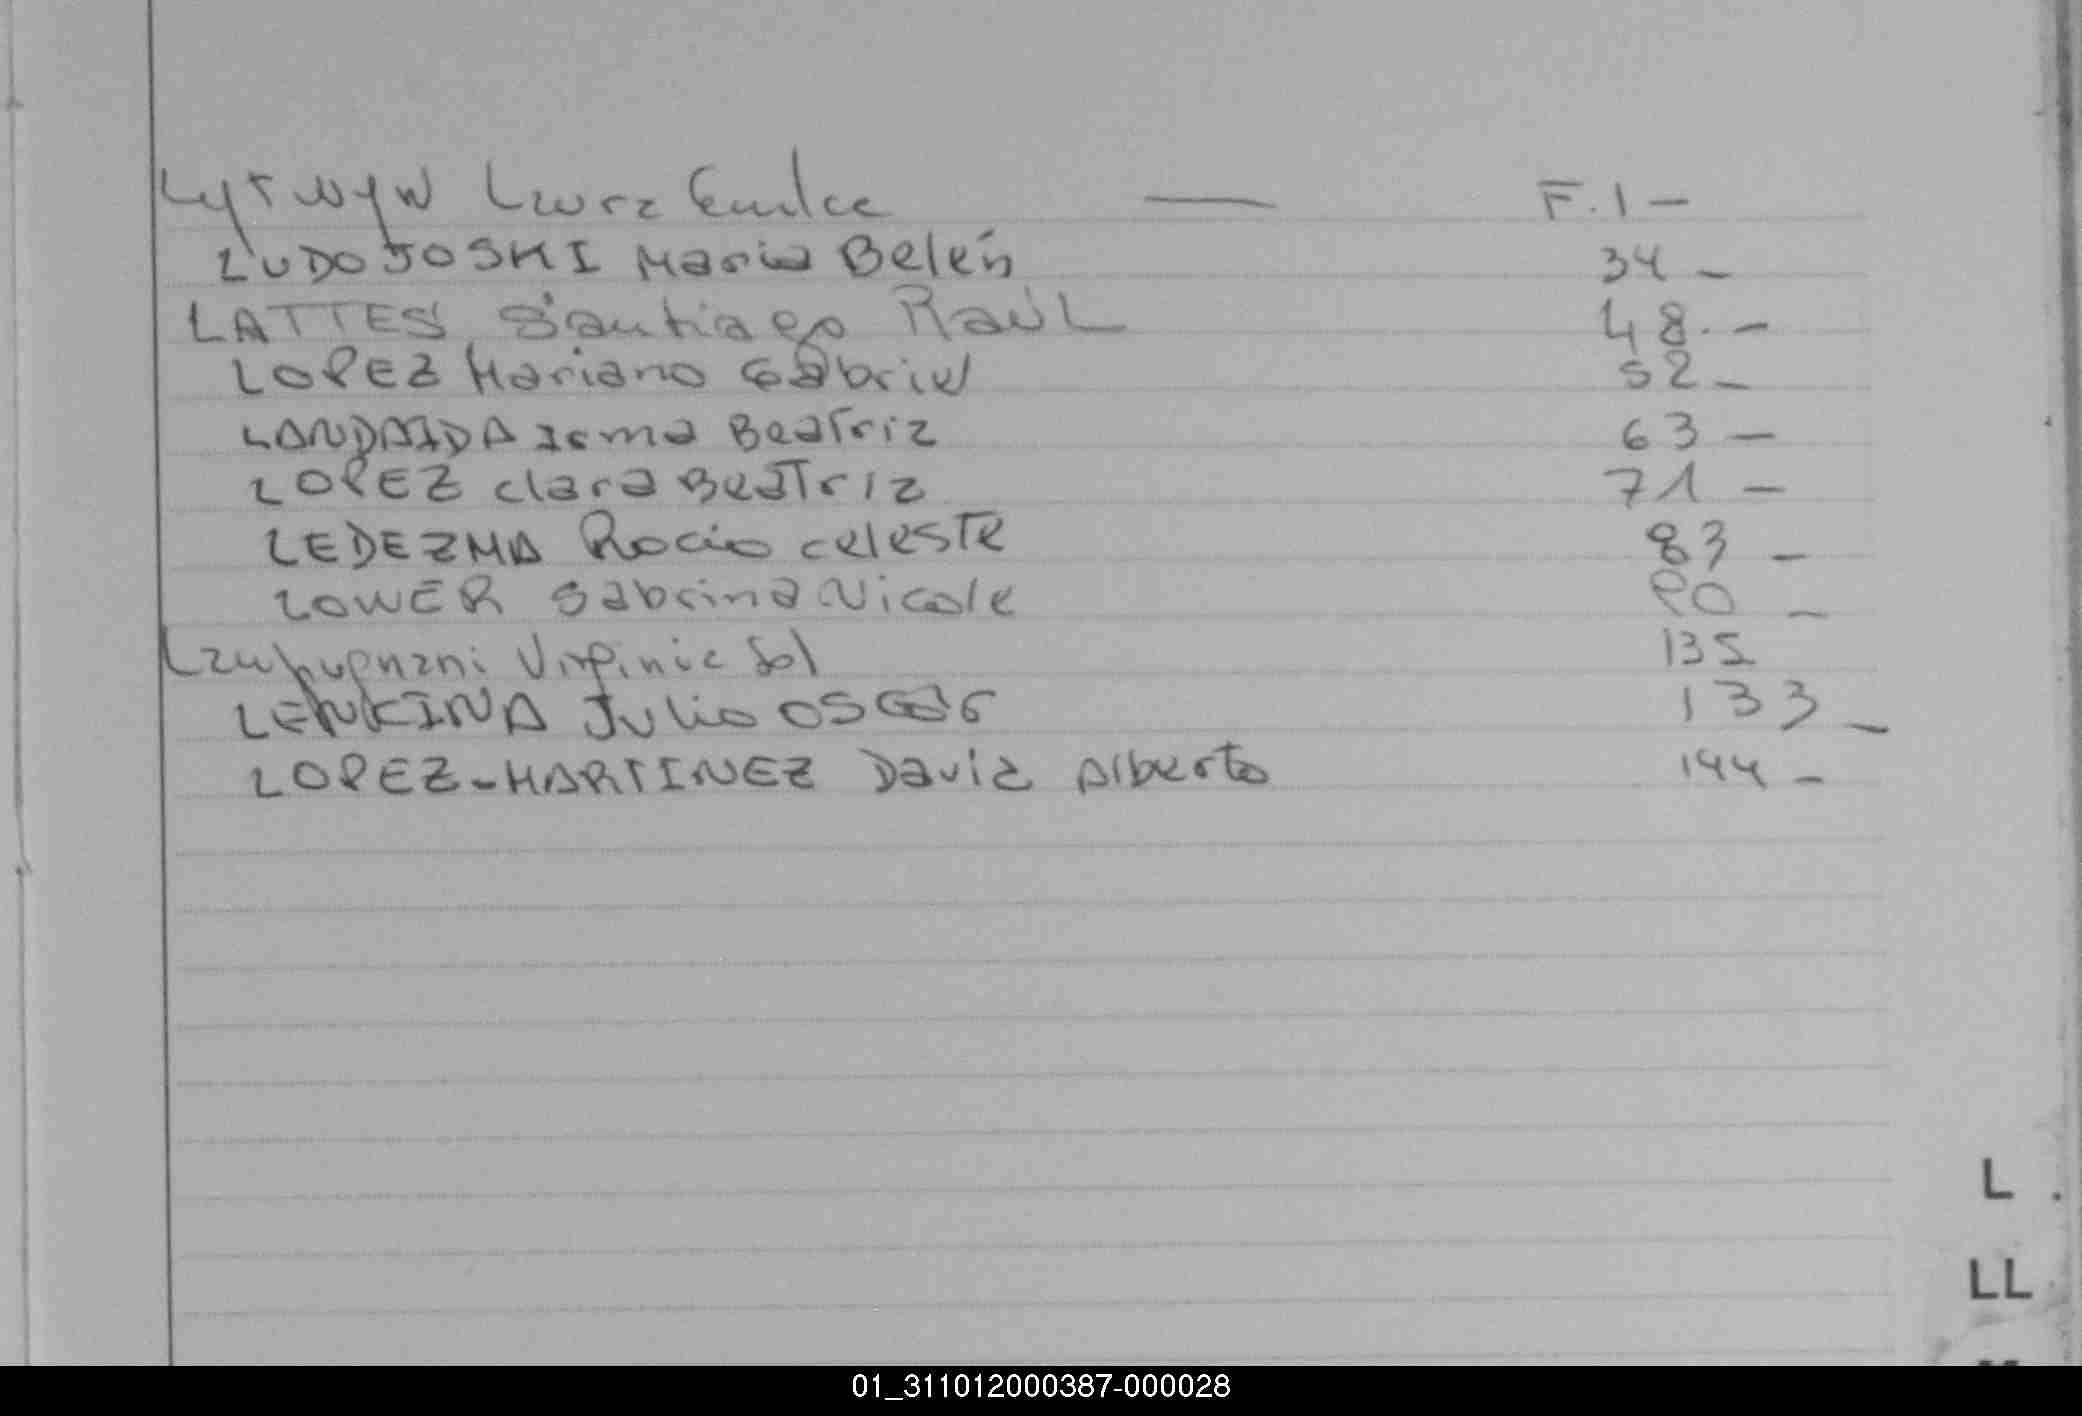 Lytwyn Laura Emilce — F. 1 -
LUDOJOSKI Maria Belén 34 -
LATTES Santiago RaúL 48. -
LOPEZ Mariano Gabriel 52 -
LANDAIDA Irma Beatriz 63 -
LOPEZ Clara Beatriz 71 -
LEDEZMA Rocio celeste 83 -
LOWER Sabrina Nicole 90 -
Virginia Sol 135
LENKINA Julio OSCar 133 -
LOPEZ-MARTINEZ David Alberto 144 -
L
LL
01_311012000387-000028